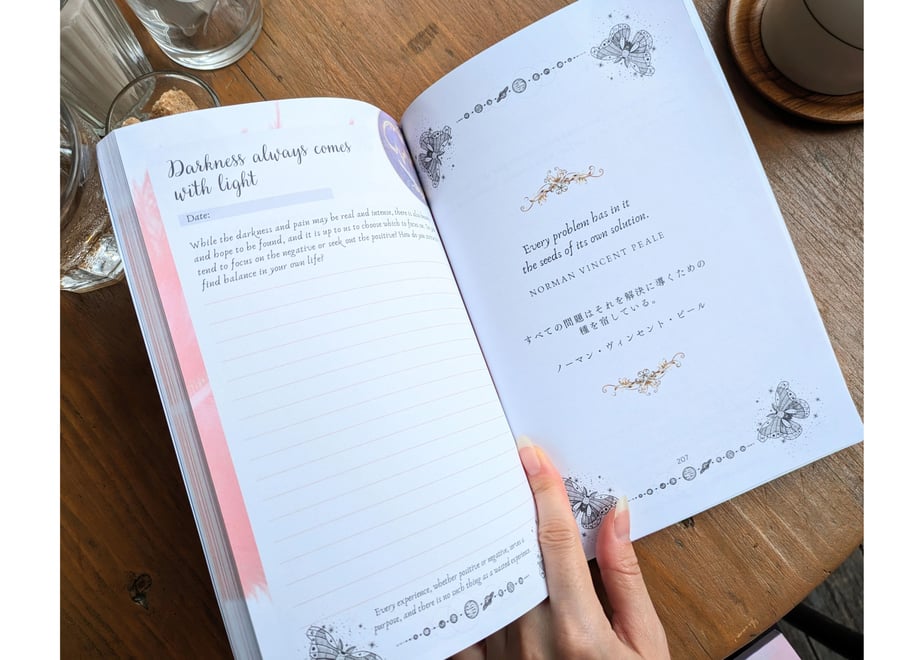 Darkness always comes
with light
Date:
While the darkness and pain may be real and intense, there is also
and hope to be found, and it is up to us to choose which to focus on. Do you
tend to focus on the negative or seek out the positive? How do you
find balance in your own life?
Every experience, whether positive or negative, serves a
purpose, and there is no such thing as a wasted experience.
Every problem has in it
the seeds of its own solution.
NORMAN VINCENT PEALE
すべての問題はそれを解決に導くための
種を宿している。
ノーマン・ヴィンセント・ピール
207